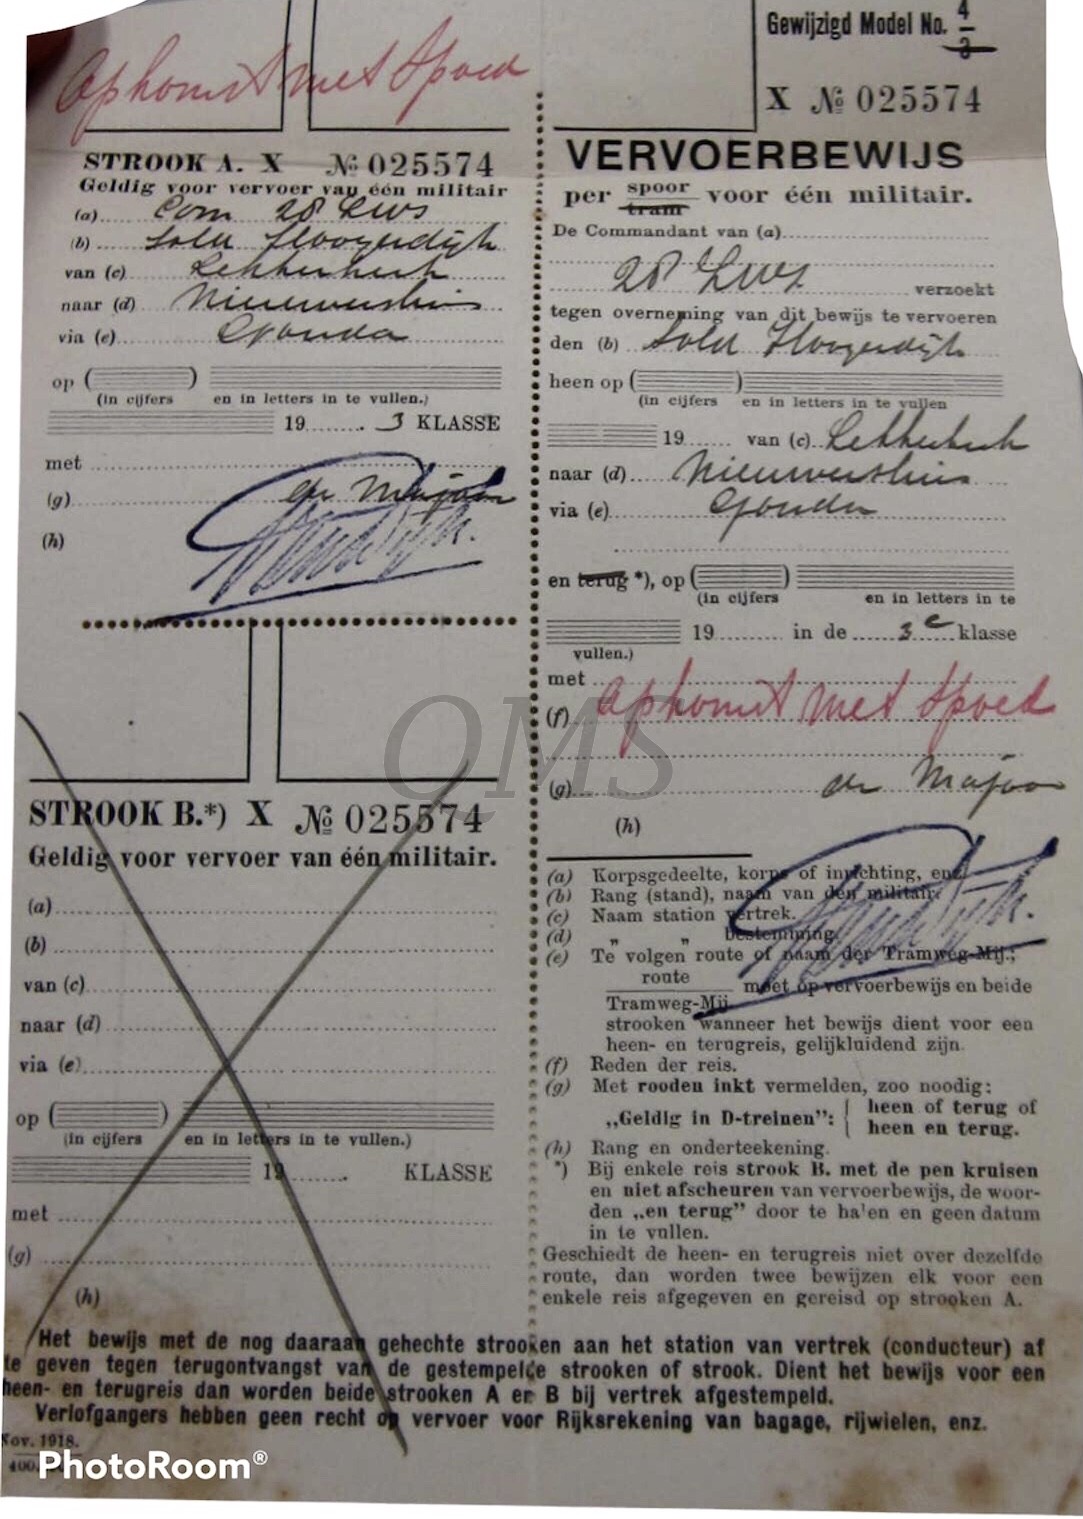 Opkomst met Spoed
STROOK A. X № 025574
Geldig voor vervoer van één militair
(a) Com 28 LWS
(b) Sold Hoogendijk
van (c) Lekkerkerk
naar (d) Nieuwersluis
via (e) Gouda
op ( )
(in cijfers en in letters in te vullen.)
19 3 KLASSE
met
(g) de Majoor
(h)
STROOK B.*) X № 025574
Geldig voor vervoer van één militair.
(a)
(b)
van (c)
naar (d)
via (e)
op ( )
(in cijfers en in letters in te vullen.)
19 KLASSE
met
(g)
(h)
Gewijzigd Model No. 4
3
X № 025574
VERVOERBEWIJS
per spoor voor één militair.
tram
De Commandant van (a)
28 LWS verzoekt
tegen overneming van dit bewijs te vervoeren
den (b) Sold Hoogendijk
heen op ( )
(in cijfers en in letters in te vullen
19 van (c) Lekkerkerk
naar (d) Nieuwersluis
via (e) Gouda
en terug *), op ( )
(in cijfers en in letters in te
19 in de 3e klasse
vullen.)
met
(f) Opkomst met Spoed
(g) de Majoor
(h)
(a) Korpsgedeelte, korps of inrichting, enz.
(b) Rang (stand), naam van den militair.
(c) Naam station vertrek.
(d) „ „ bestemming.
(e) Te volgen route of naam der Tramweg-Mij.;
route
Tramweg-Mij. moet op vervoerbewijs en beide
strooken wanneer het bewijs dient voor een
heen- en terugreis, gelijkluidend zijn.
(f) Reden der reis.
(g) Met rooden inkt vermelden, zoo noodig:
„Geldig in D-treinen": { heen of terug of
heen en terug.
(h) Rang en onderteekening.
*) Bij enkele reis strook B. met de pen kruisen
en niet afscheuren van vervoerbewijs, de woor-
den „en terug" door te ha'en en geen datum
in te vullen.
Geschiedt de heen- en terugreis niet over dezelfde
route, dan worden twee bewijzen elk voor een
enkele reis afgegeven en gereisd op strooken A.
Het bewijs met de nog daaraan gehechte strooken aan het station van vertrek (conducteur) af
te geven tegen terugontvangst van de gestempelde strooken of strook. Dient het bewijs voor een
heen- en terugreis dan worden beide strooken A en B bij vertrek afgestempeld.
Verlofgangers hebben geen recht op vervoer voor Rijksrekening van bagage, rijwielen, enz.
Nov. 1918.
400.
QMS
PhotoRoom®